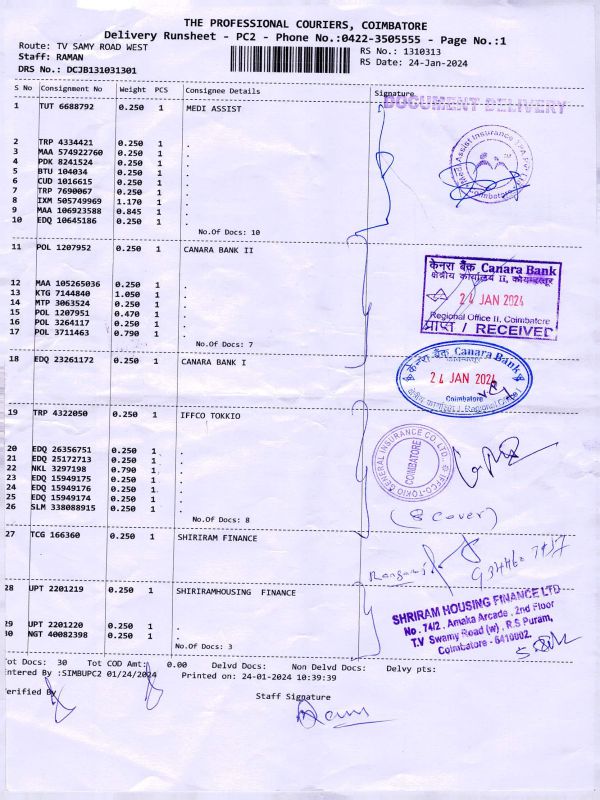 THE PROFESSIONAL COURIERS, COIMBATORE
Delivery Runsheet - PC2 - Phone No.:0422-3505555 - Page No.:1
Route: TV SAMY ROAD WEST
RS No.: 1310313
Staff: RAMAN
RS Date: 24-Jan-2024
DRS No.: DCJB131031301
S No Consignment No Weight PCS Consignee Details Signature
DOCUMENT DELIVERY
1 TUT 6688792 0.250 1 MEDI ASSIST
Medi Assist Insurance TPA Pvt Ltd
Coimbatore
2 TRP 4334421 0.250 1 .
3 MAA 574922760 0.250 1 .
4 PDK 8241524 0.250 1 .
5 BTU 104034 0.250 1 .
6 CUD 1016615 0.250 1 .
7 TRP 7690067 0.250 1 .
8 IXM 505749969 1.170 1 .
9 MAA 106923588 0.845 1 .
10 EDQ 10645186 0.250 1 .
No.Of Docs: 10
11 POL 1207952 0.250 1 CANARA BANK II
केनरा बैंक Canara Bank
क्षेत्रीय कार्यालय II, कोयम्बत्तूर
24 JAN 2024
Regional Office II, Coimbatore
प्राप्त / RECEIVED
12 MAA 105265036 0.250 1 .
13 KTG 7144840 1.050 1 .
14 MTP 3063524 0.250 1 .
15 POL 1207951 0.470 1 .
16 POL 3264117 0.250 1 .
17 POL 3711463 0.790 1 .
No.Of Docs: 7
18 EDQ 23261172 0.250 1 CANARA BANK I
केनरा बैंक Canara Bank
24 JAN 2024
Coimbatore
19 TRP 4322050 0.250 1 IFFCO TOKKIO
IFFCO-TOKIO GENERAL INSURANCE CO. LTD.
COIMBATORE
20 EDQ 26356751 0.250 1 .
21 EDQ 25172713 0.250 1 .
22 NKL 3297198 0.790 1 .
23 EDQ 15949175 0.250 1 .
24 EDQ 15949176 0.250 1 .
25 EDQ 15949174 0.250 1 .
26 SLM 338088915 0.250 1 .
No.Of Docs: 8
(8 Cover)
27 TCG 166360 0.250 1 SHIRIRAM FINANCE
28 UPT 2201219 0.250 1 SHIRIRAMHOUSING FINANCE
SHRIRAM HOUSING FINANCE LTD
No. 74/2, Amaka Arcade, 2nd Floor
T.V Swamy Road (w), R.S Puram,
Coimbatore - 6410002.
29 UPT 2201220 0.250 1 .
30 NGT 40082398 0.250 1 .
No.Of Docs: 3
Tot Docs: 30 Tot COD Amt: 0.00 Delvd Docs: Non Delvd Docs: Delvy pts:
Entered By :SIMBUPC2 01/24/2024 Printed on: 24-01-2024 10:39:39
Verified By
Staff Signature